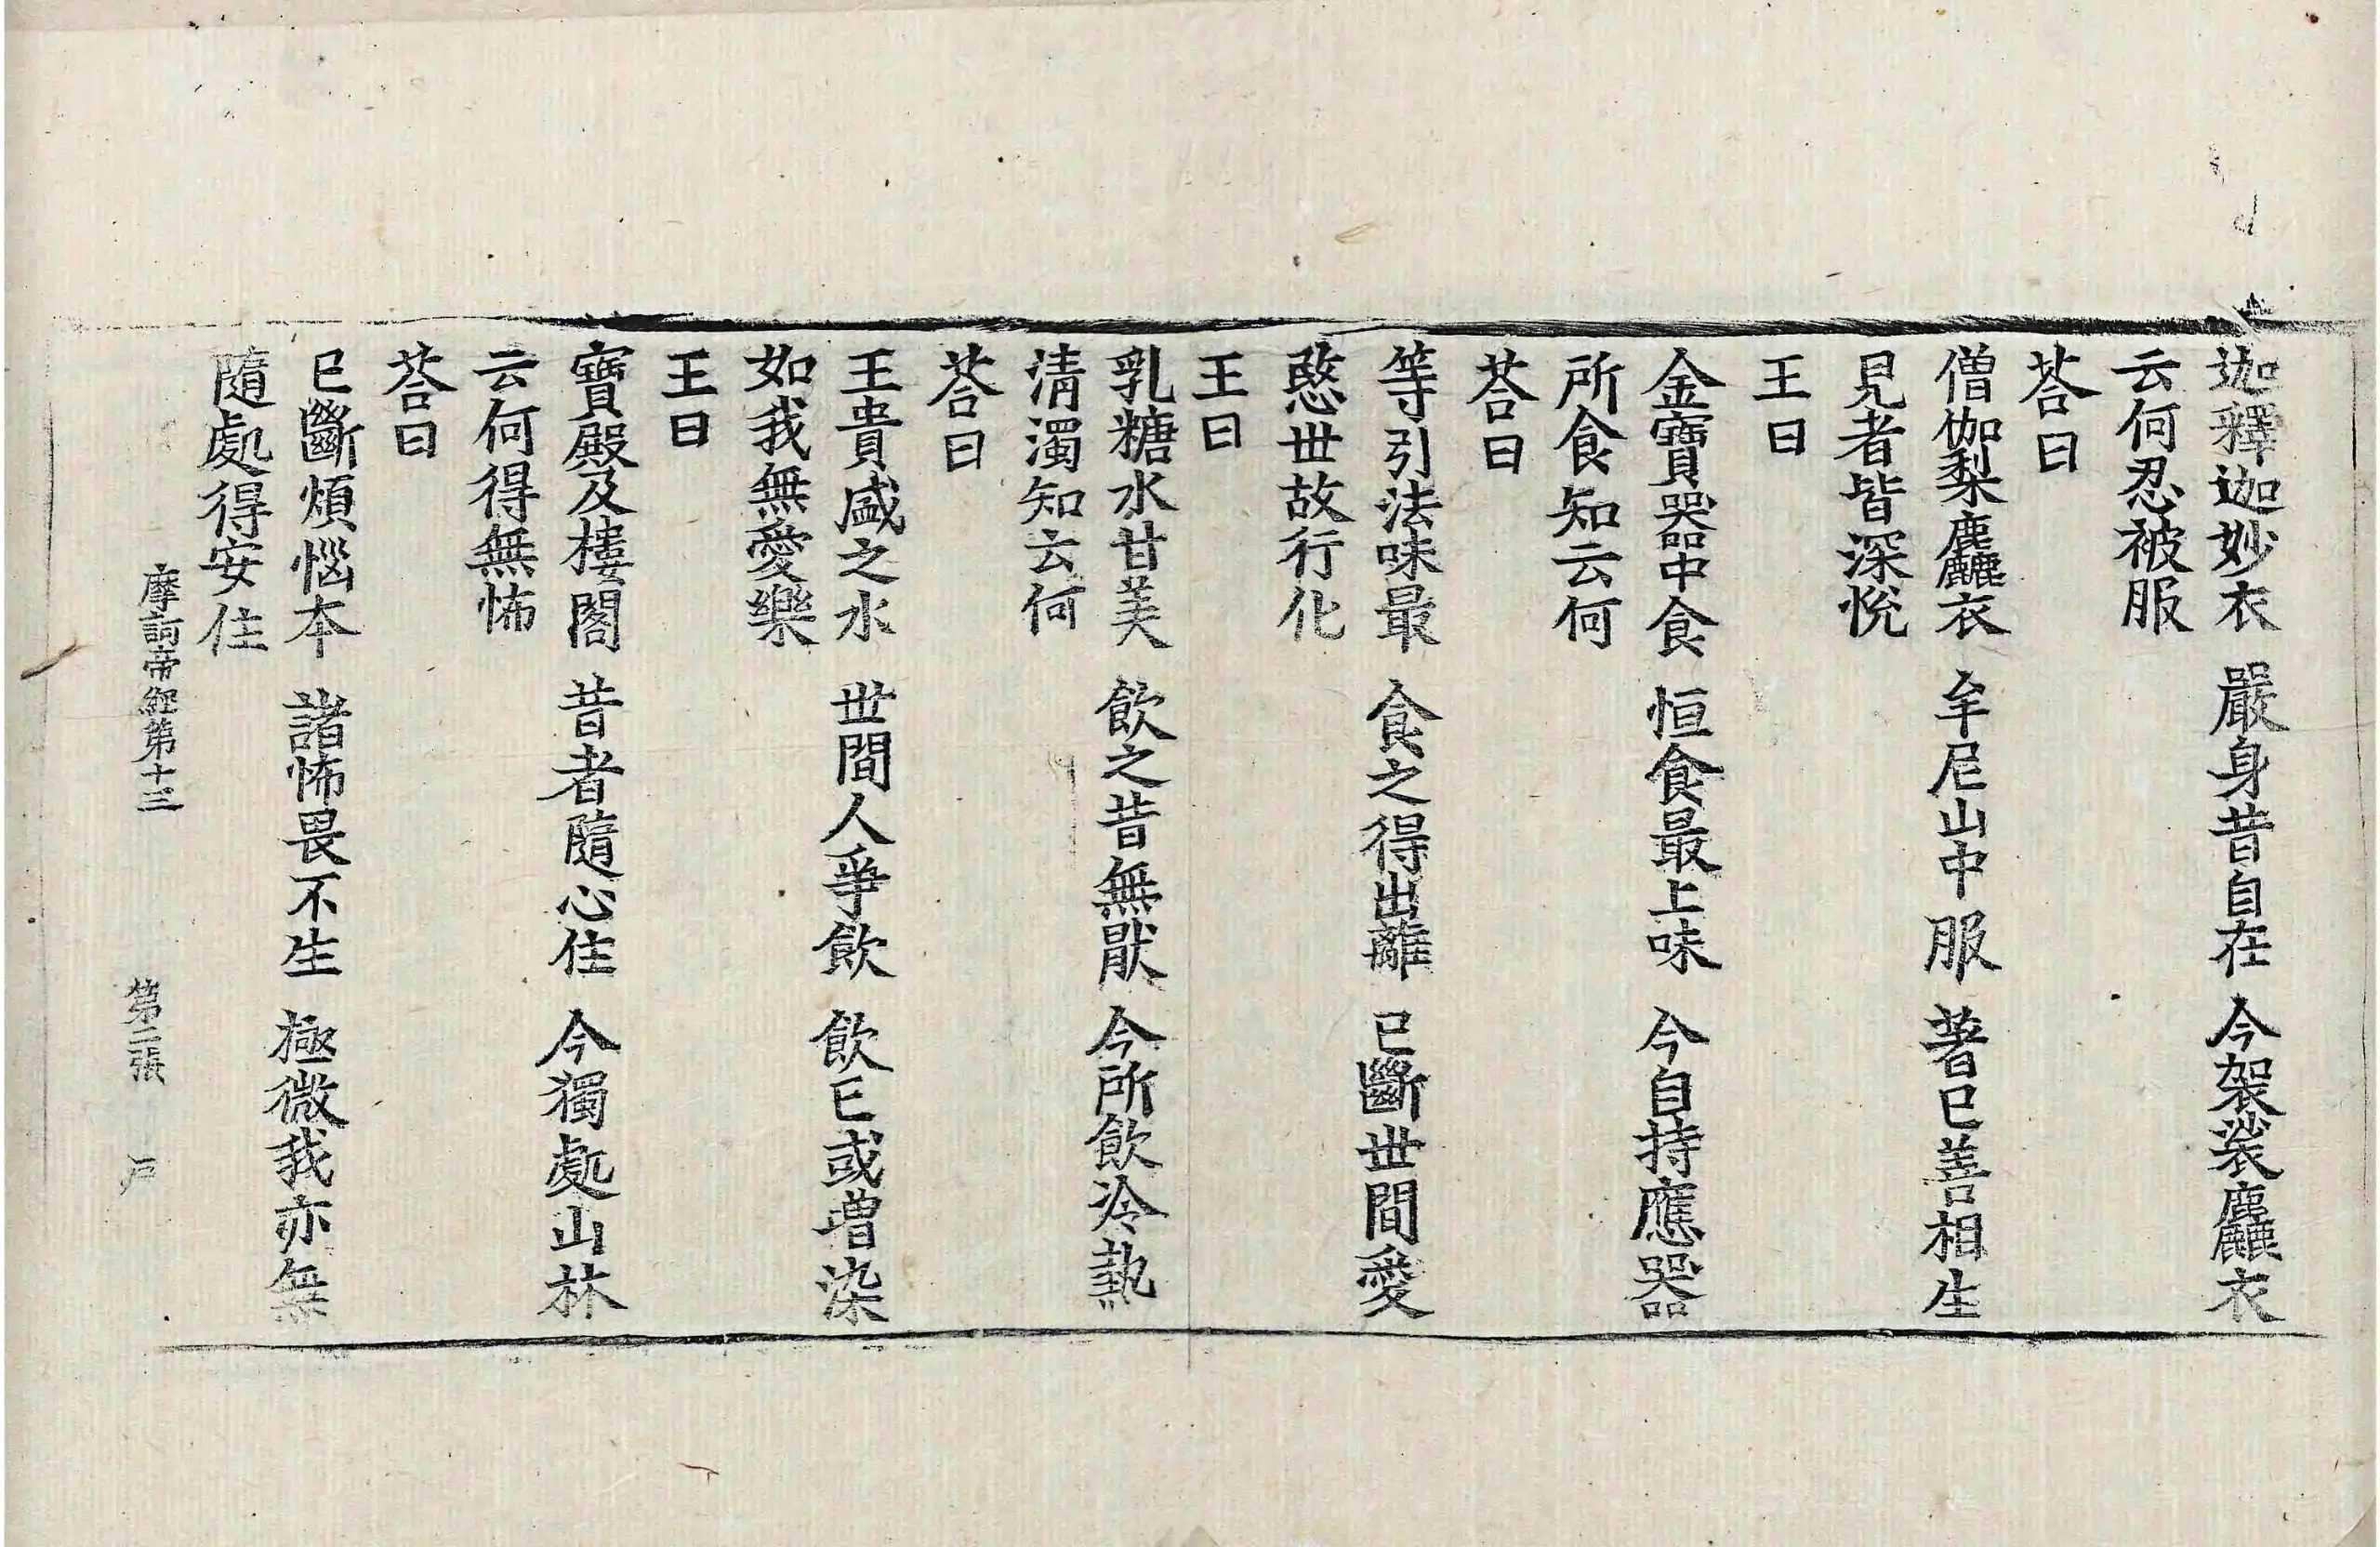 迦釋迦妙衣　嚴身昔自在　今袈裟麤衣
云何忍被服
荅曰
僧伽梨麤衣　牟尼山中服　著已善相生
見者皆深悅
王曰
金寶器中食　恒食最上味　今自持應器
所食知云何
荅曰
等引法味最　食之得出離　已斷世間愛
愍世故行化
王曰
乳糖水甘美　飲之昔無猒　今所飲冷熱
清濁知云何
荅曰
王貴盛之水　世間人爭飲　飲已或増染
如我無愛樂
王曰
寶殿及樓閣　昔者隨心住　今獨處山林
云何得無怖
荅曰
已斷煩惱本　諸怖畏不生　極微我亦無
隨處得安住
摩訶帝經第十三　第二張　戶